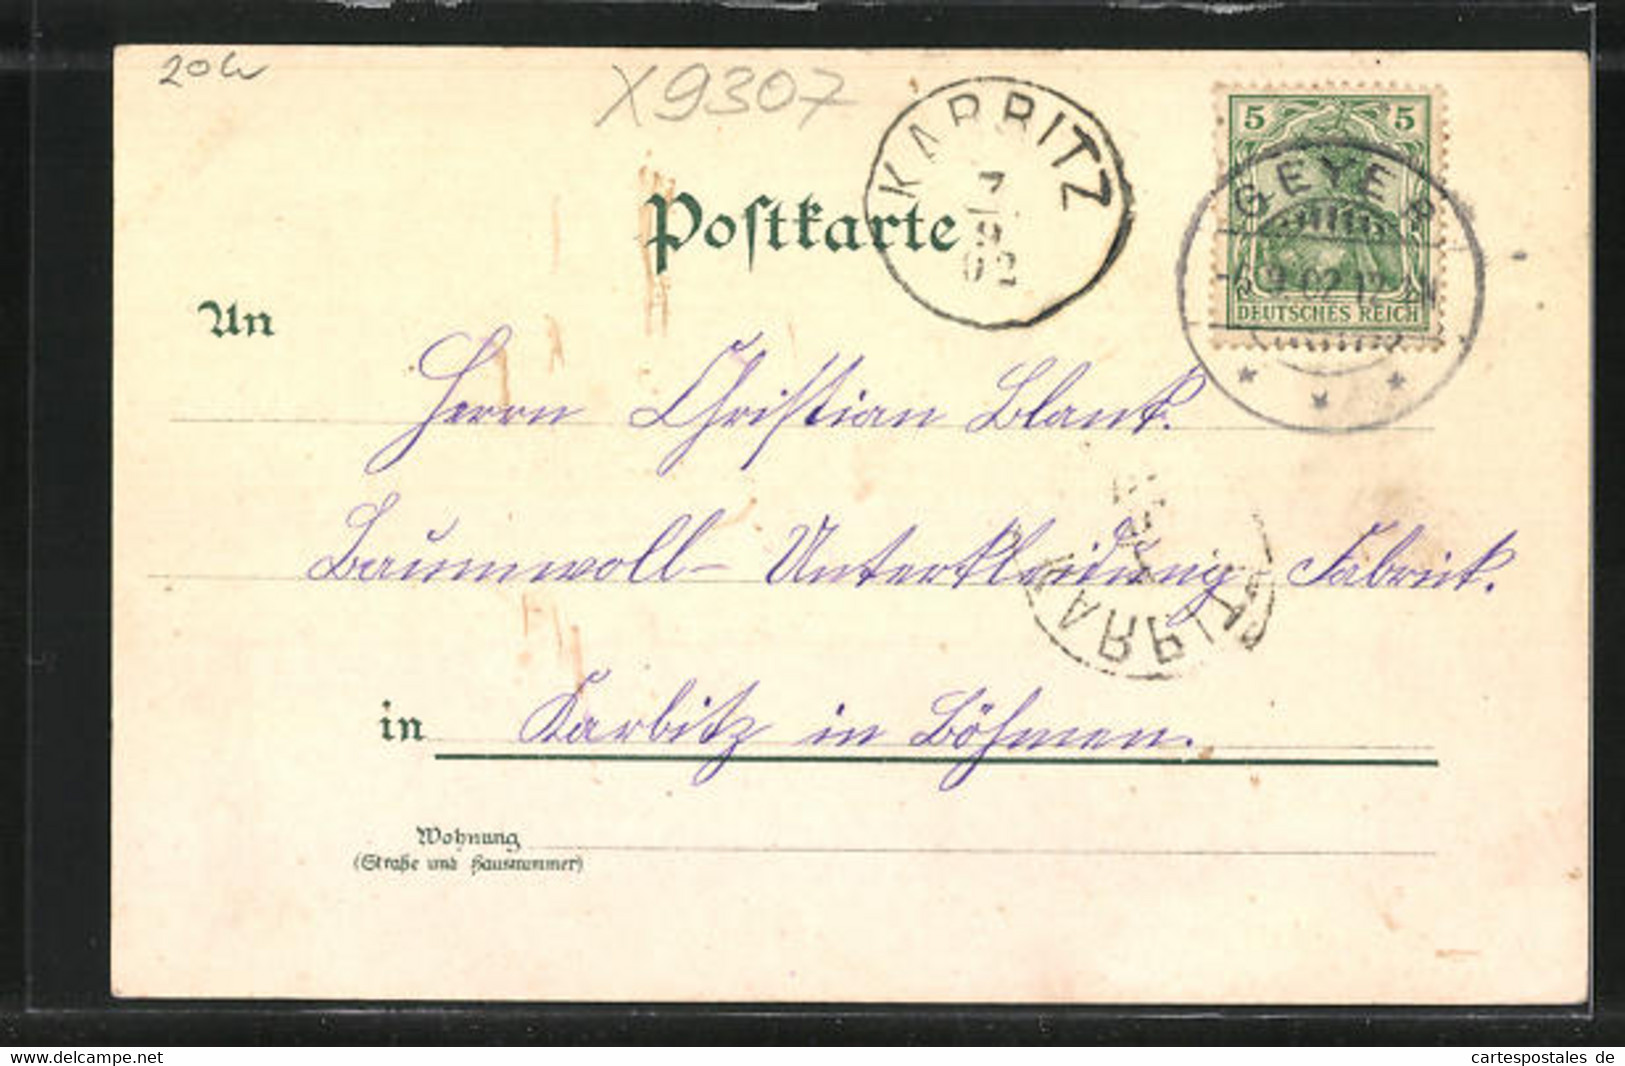 20h
X9307
KARBITZ
7
9
02
5 5
GEYER
-6.9.02.12-1N
DEUTSCHES REICH
Postkarte
An
Herrn Christian Blank.
Baumwoll- Unterkleidung Fabrick.
KARBITZ
in Karbitz in Böhmen.
Wohnung
(Straße und Hausnummer)
the-comptoir.com
cartespostales de